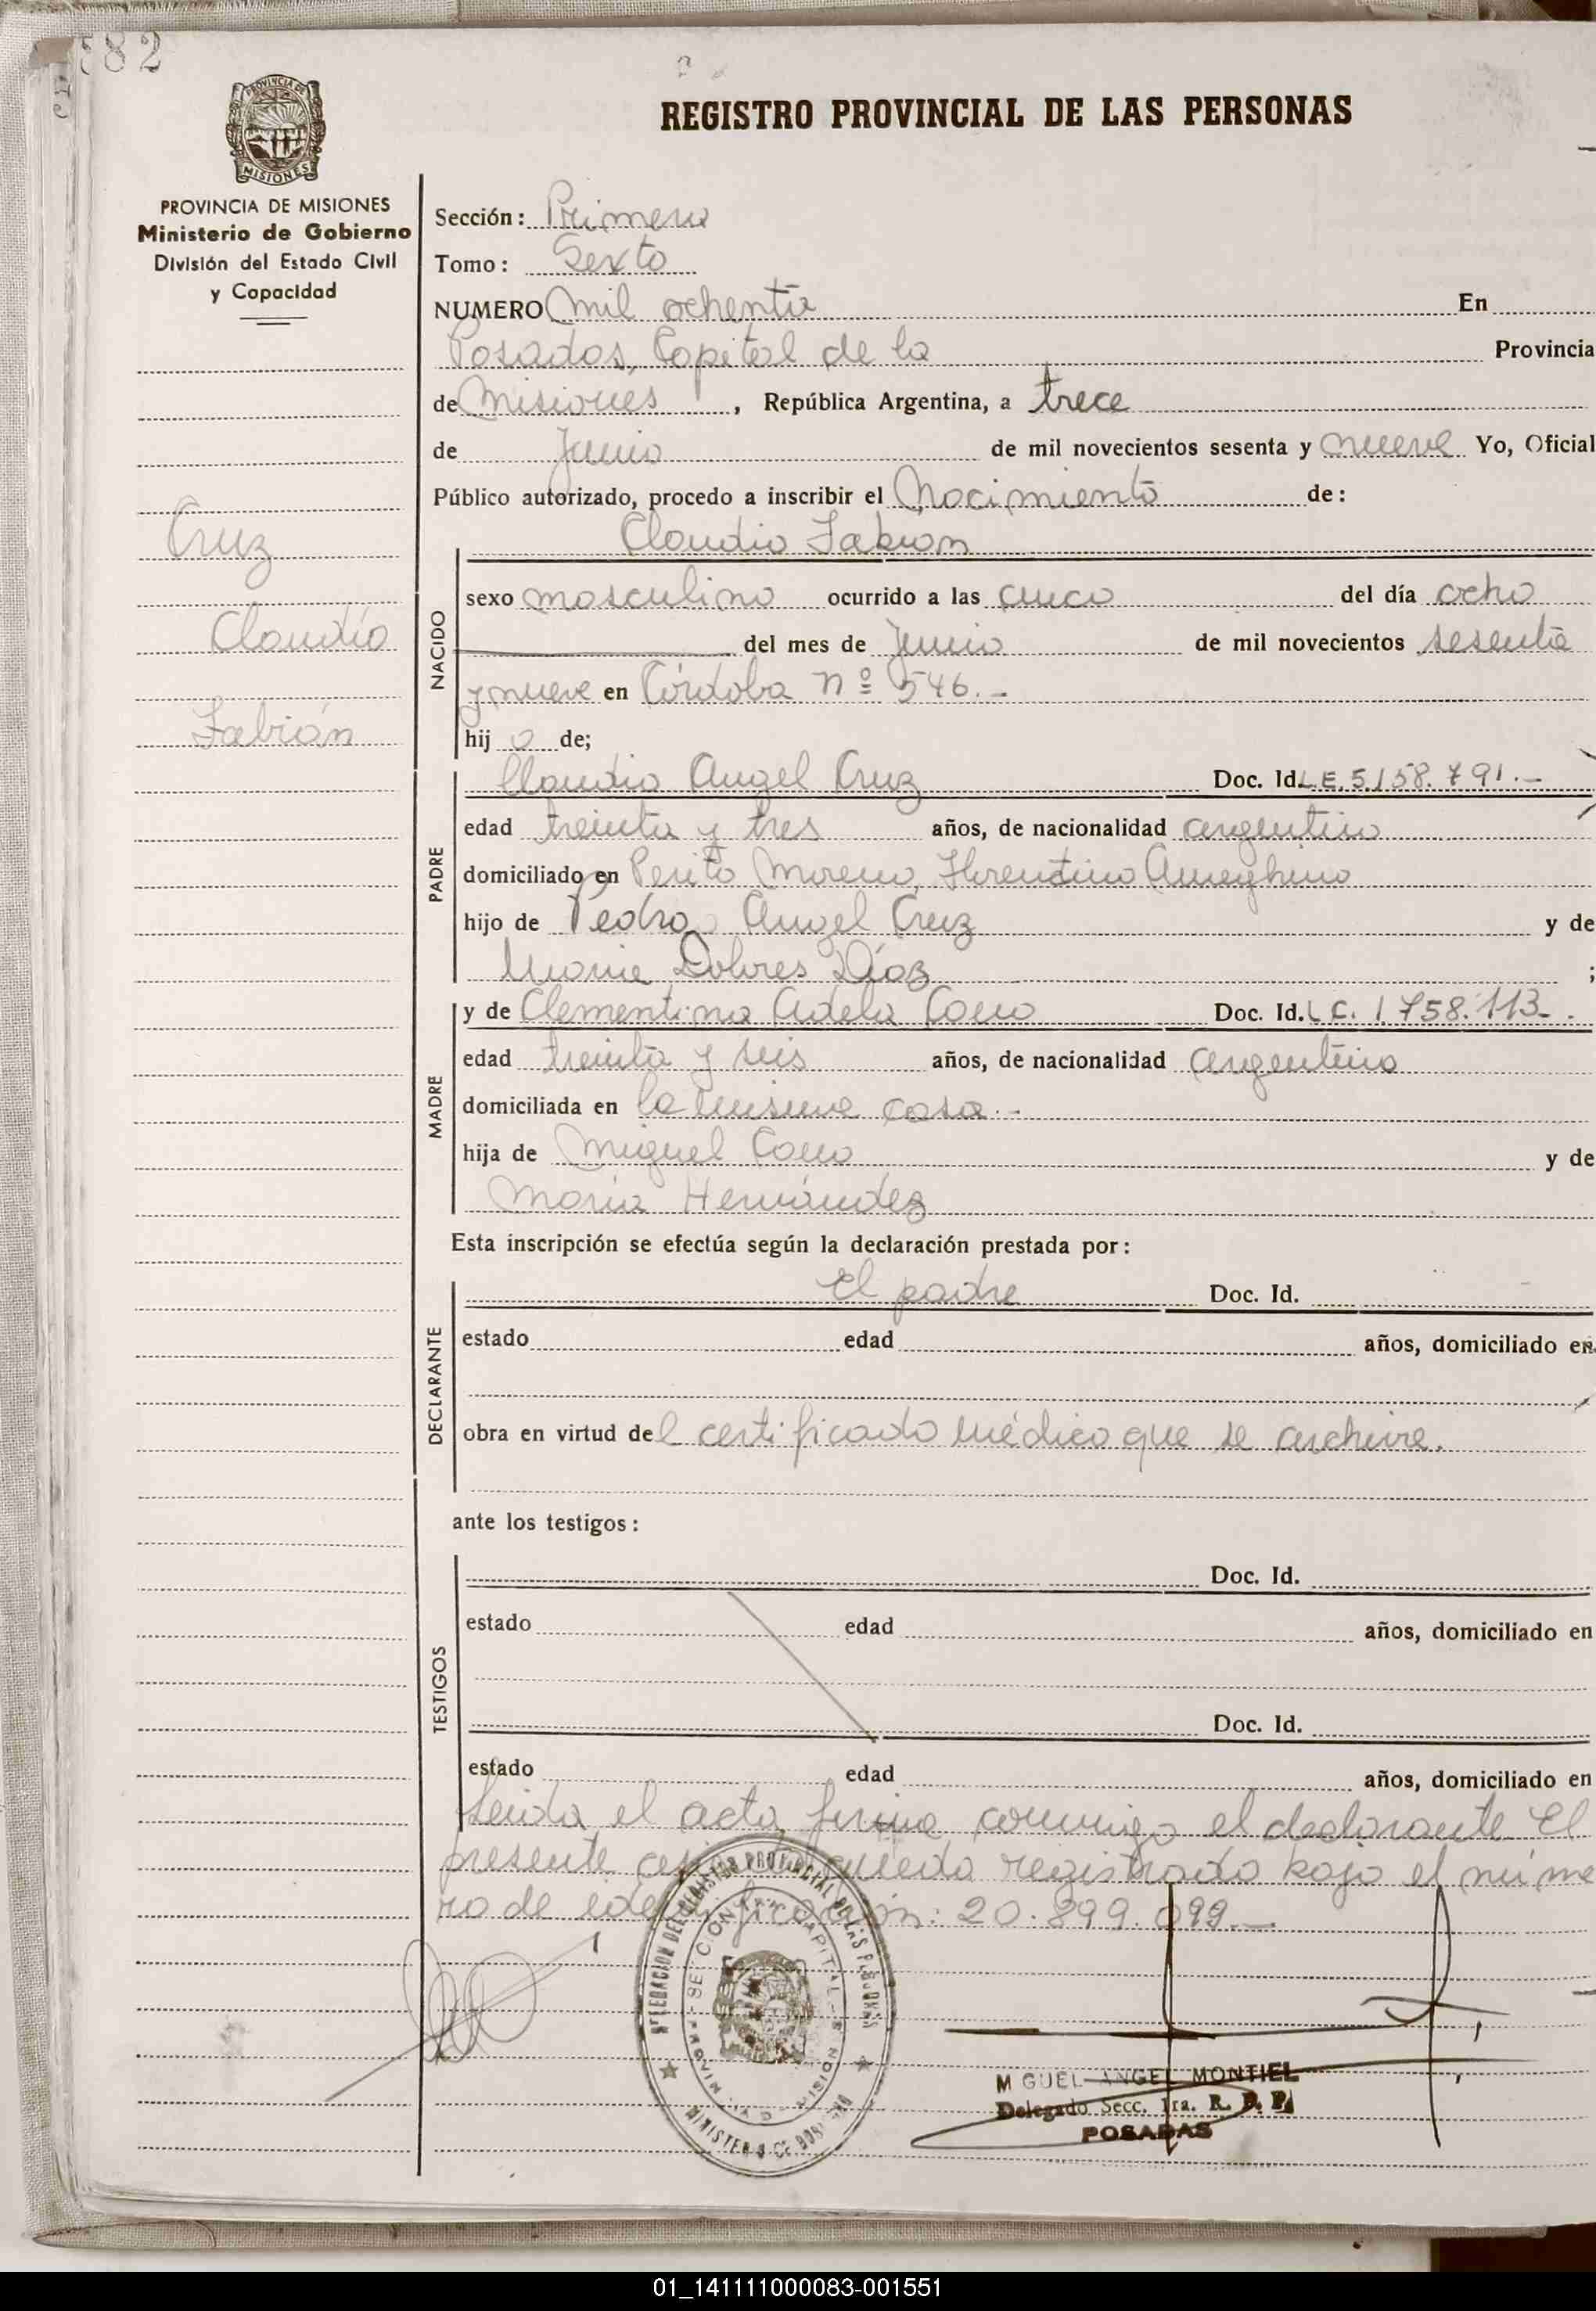 582
REGISTRO PROVINCIAL DE LAS PERSONAS
PROVINCIA DE
MISIONES
PROVINCIA DE MISIONES
Ministerio de Gobierno
División del Estado Civil
y Capacidad
Cruz
Claudio
Fabián
Sección: Primera
Tomo: Sexto
NUMERO mil ochenta En
Posadas, Capital de la Provincia
de Misiones, República Argentina, a trece
de Junio de mil novecientos sesenta y nueve Yo, Oficial
Público autorizado, procedo a inscribir el Nacimiento de:
Claudio Fabian
NACIDO
sexo masculino ocurrido a las cinco del día ocho
del mes de Junio de mil novecientos sesenta
y nueve en Córdoba nº 546.-
hij o de;
PADRE
Claudio Angel Cruz Doc. Id. L.E. 5.158.791.-
edad treinta y tres años, de nacionalidad argentino
domiciliado en Perito Moreno, Florentino Ameghino
hijo de Pedro Angel Cruz y de
Maria Dolores Díaz ;
MADRE
y de Clementina Adela Doc. Id. L.C. 1.758.113-.
edad treinta y seis años, de nacionalidad argentina
domiciliada en la misma casa.-
hija de Miguel y de
María Hernández
Esta inscripción se efectúa según la declaración prestada por:
DECLARANTE
El padre Doc. Id.
estado edad años, domiciliado en
obra en virtud del certificado médico que se archiva.
ante los testigos:
TESTIGOS
Doc. Id.
estado edad años, domiciliado en
Doc. Id.
estado edad años, domiciliado en
Leida el acta, firma conmigo el declarante. El
presente queda registrado bajo el núme
ro de identificación: 20.899.099.-
DELEGACION DEL REGISTRO PROVINCIAL DE LAS PERSONAS
MINISTERIO DE GOBIERNO
MIGUEL ANGEL MONTIEL
Delegado Secc. 1ra. R. P. P.
POSADAS
01_141111000083-001551